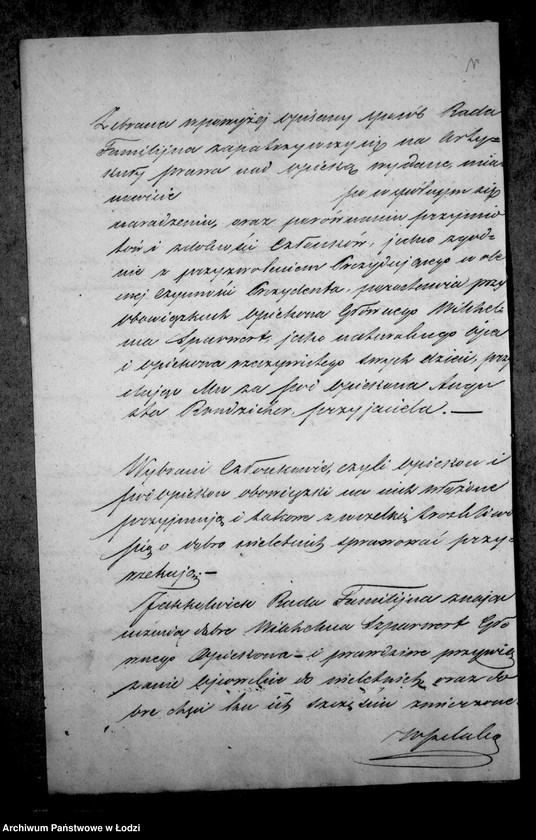 Zebrana w powyżej opisany sposób Rada
Familijna zapatrzywszy się na Arty-
kuły prawa nad opieką wydane, mia
nowicie po wspólnym się
naradzeniu, oraz porównaniu przymio
tów i zdolności Członków, jako zgod-
nie z przyzwoleniem Prezydującego w obe
cnej czynności Prezydenta, pozostawia przy
obowiązkach Opiekuna Głównego Wilhel
ma Szparwart, jako naturalnego Ojca
i Opiekuna rzeczywistego swych dzieci, przy
dając Mu za pod Opiekuna Augu
sta przyjaciela. —
Wybrani Członkowie, czyli Opiekun i
pod Opiekun obowiązki na nich włożone
przyjmują i takowe z wszelką troskliwo
ścią o dobro nieletnich sprawować przy-
rzekają. —
Jakkolwiek Rada Familijna znając
mienia dobre Wilhelma Szparwart Głó
wnego Opiekuna — i prawdziwe przywią
zanie ojcowskie do nieletnich, oraz do
bre chęci ku ich szczęściu zmierzone
Archiwum Państwowe w Łodzi